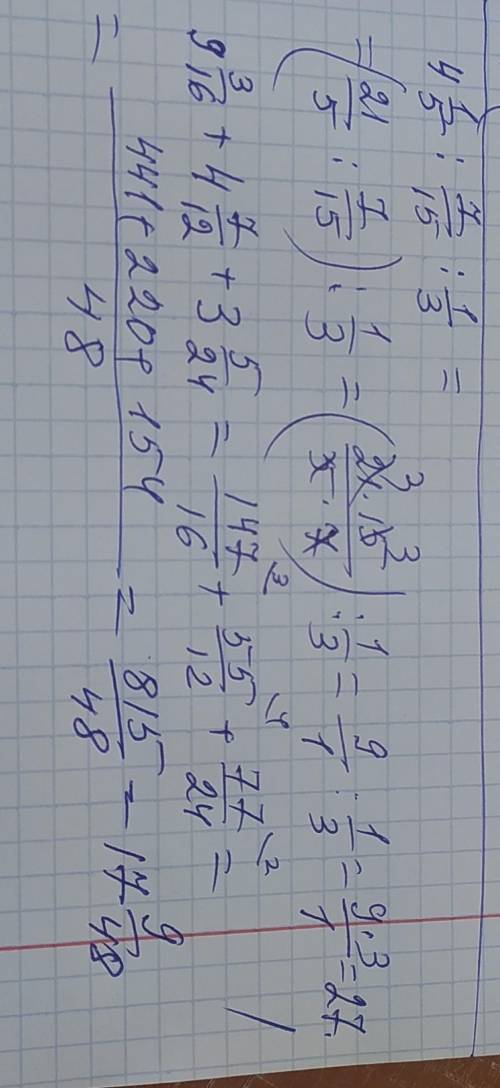 4 1/5 : 7/15 : 1/3 =
= (21/5 : 7/15) : 1/3 = (21³ · 15³ / 5 · 7) : 1/3 = 9/1 : 1/3 = 9·3/1 = 27.
9 3/16 + 4 7/12 + 3 5/24 = 147/16 \3 + 55/12 \4 + 77/24 \2 =
= 441+220+154 / 48 = 815/48 = 17 9/48